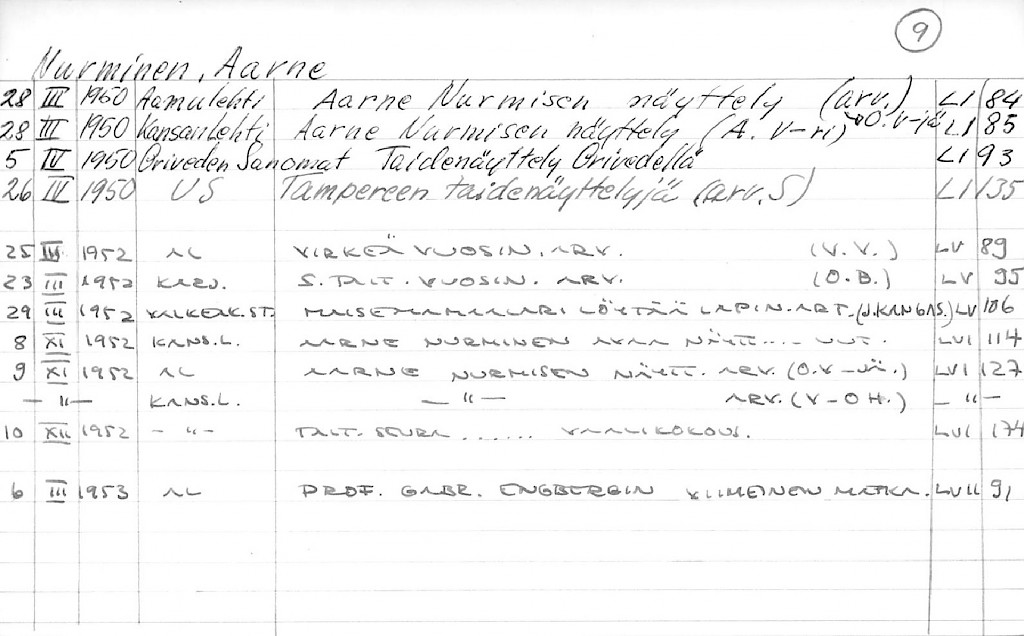 9
Nurminen, Aarne
28 III 1950 Aamulehti Aarne Nurmisen näyttely (arv.) O.V-jä LI 84
28 III 1950 Kansanlehti Aarne Nurmisen näyttely (A. V-ri) LI 85
5 IV 1950 Oriveden Sanomat Taidenäyttely Orivedellä LI 93
26 IV 1950 US Tampereen taidenäyttelyjä (arv. S) LI 135
25 III 1952 AL VIRKEÄ VUOSIN. ARV. (V.V.) LV 89
23 III 1952 S.TAIT. VUOSIN. ARV. (O.B.) LV 95
29 III 1952 VALKEAK.ST. MAISEMAMAALARI LÖYTÄÄ LAPIN.ART. (J.KANGAS.) LV 106
8 XI 1952 KANS.L. AARNE NURMINEN AVAA NÄYTT.... UUT. LVI 114
9 XI 1952 AL AARNE NURMISEN NÄYTT. ARV. (O.V-JÄ.) LVI 127
— " — KANS.L. — " — ARV. (V-OH.) — " —
10 XII 1952 — " — TAIT. SEURA ....... VAALIKOKOUS. LVI 174
6 III 1953 AL PROF. GABR. ENGBERGIN VIIMEINEN MATKA. LVII 91